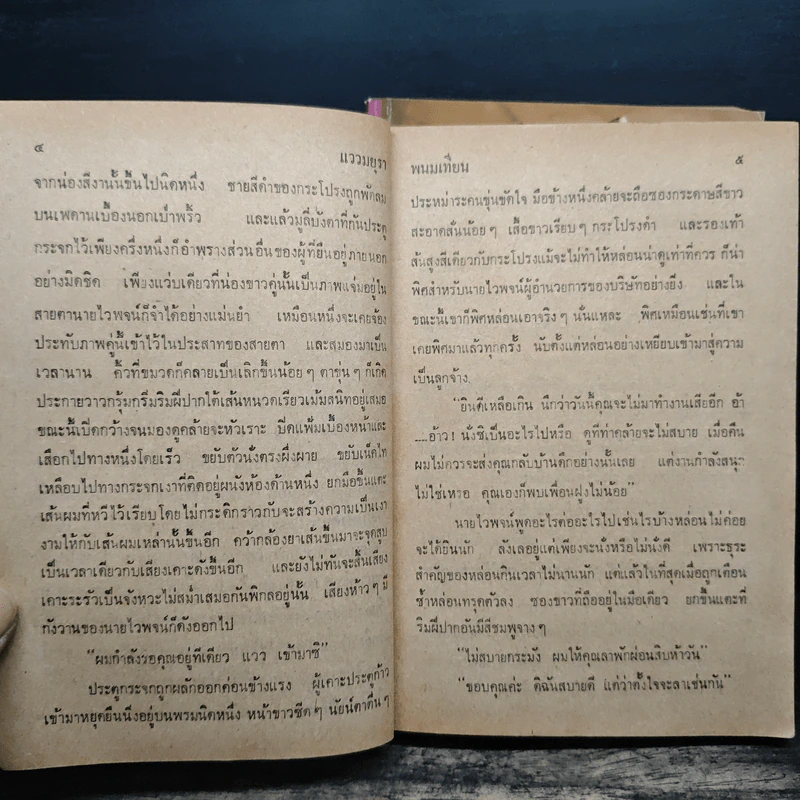 ๔ แววมยุรา
จากน่องสีงานั้นขึ้นไปนิดหนึ่ง ชายสีดำของกระโปรงถูกพัดลม
บนเพดานเบื้องนอกเป่าพริ้ว และแล้วมูลี่บังตาที่กั้นประตู
กระจกไว้เพียงครึ่งหนึ่งก็อำพรางส่วนอื่นของผู้ที่ยืนอยู่ภายนอก
อย่างมิดชิด เพียงแว่บเดียวที่น่องขาวคู่นั้นเป็นภาพแจ่มอยู่ใน
สายตานายไวพจน์ก็จำได้อย่างแม่นยำ เหมือนหนึ่งจะเคยจ้อง
ประทับภาพคู่นี้เข้าไว้ในประสาทของสายตา และสมองมาเป็น
เวลานาน คิ้วที่ขมวดก็คลายเป็นเลิกขึ้นน้อยๆ ตาขุ่นๆ ก็เกิด
ประกายวาวกรุ้มกริ่มริมฝีปากใต้เส้นหนวดเรียวเม้มสนิทอยู่เสมอ
ขณะนี้เปิดกว้างจนมองดูคล้ายจะหัวเราะ ปิดแฟ้มเบื้องหน้าและ
เลือกไปทางหนึ่งโดยเร็ว ขยับตัวนั่งตรงผึ่งผาย ขยับเน็คไท
เหลือบไปทางกระจกเงาที่ติดอยู่ผนังห้องด้านหนึ่ง ยกมือขึ้นแตะ
เส้นผมที่หวีไว้เรียบโดยไม่กระดิกราวกับจะสร้างความเป็นเงา
งามให้กับเส้นผมเหล่านั้นขึ้นอีก คว้ากล้องยาเส้นขึ้นมาจะจุดสูบ
เป็นเวลาเดียวกับเสียงเคาะดังขึ้นอีก และยังไม่ทันจะสิ้นเสียง
เคาะระรัวเป็นจังหวะไม่สม่ำเสมอกันพิกลอยู่นั้น เสียงห้าวๆ มี
กังวานของนายไวพจน์ก็ดังออกไป
“ผมกำลังรอคุณอยู่ทีเดียว แวว เข้ามาซิ”
ประตูกระจกถูกผลักออกค่อนข้างแรง ผู้เคาะประตูก้าว
เข้ามาหยุดยืนนิ่งอยู่บนพรมนิดหนึ่ง หน้าขาวซีดๆ นัยน์ตาตื่นๆ
พนมเทียน ๕
ประหม่าระคนขุ่นขัดใจ มือข้างหนึ่งคล้ายจะถือซองกระดาษสีขาว
สะอาดสั่นน้อยๆ เสื้อขาวเรียบๆ กระโปรงดำ และรองเท้า
ส้นสูงสีเดียวกับกระโปรงแม้จะไม่ทำให้หล่อนน่าดูเท่าที่ควร ก็น่า
พิศสำหรับนายไวพจน์ผู้อำนวยการของบริษัทอย่างยิ่ง และใน
ขณะนี้เขาก็พิศหล่อนเอาจริงๆ นั่นแหละ พิศเหมือนเช่นที่เขา
เคยพิศมาแล้วทุกครั้ง นับตั้งแต่หล่อนย่างเหยียบเข้ามาสู่ความ
เป็นลูกจ้าง.
“ยินดีเหลือเกิน นึกว่าวันนี้คุณจะไม่มาทำงานเสียอีก อ้า
....อ้าว! นั่งซิเป็นอะไรไปหรือ ดูทีท่าคล้ายจะไม่สบาย เมื่อคืน
ผมไม่ควรจะส่งคุณกลับบ้านดึกอย่างนั้นเลย แต่งานกำลังสนุก
ไม่ใช่เหรอ คุณเองก็พบเพื่อนฝูงไม่น้อย”
นายไวพจน์พูดอะไรต่ออะไรไปเช่นไรบ้างหล่อนไม่ค่อย
จะได้ยินนัก ลังเลอยู่แต่เพียงจะนั่งหรือไม่นั่งดี เพราะธุระ
สำคัญของหล่อนกินเวลาไม่นานนัก แต่แล้วในที่สุดเมื่อถูกเตือน
ซ้ำหล่อนทรุดตัวลง ซองขาวที่ถืออยู่ในมือเดียว ยกขึ้นแตะที่
ริมฝีปากอันมีสีชมพูจางๆ
“ไม่สบายกระมัง ผมให้คุณลาพักผ่อนสิบห้าวัน”
“ขอบคุณค่ะ ดิฉันสบายดี แต่ว่าตั้งใจจะลาเช่นกัน”